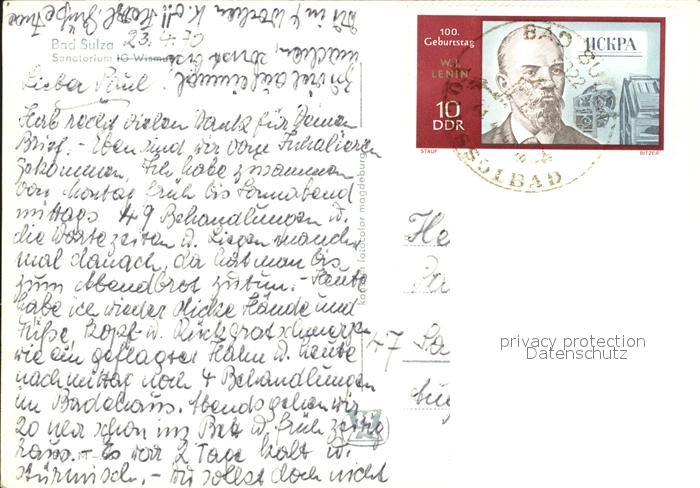 Bad Sulza 23.4.70
Sanatorium IG Wismut
Lieber Paul!
Herzl. recht vielen Dank für Deinen
Brief. - Eben sind wir vom Inhalieren
gekommen. Ich habe zusammen
von Montag früh bis Sonnabend
mittags 49 Behandlungen u.
die Wartezeiten u. Liegen manch-
mal danach, da hat man bis
zum Abendbrot zutun. - Heute
habe ich wieder dicke Hände und
Füße, Kopf- u. Rückgratschmerzen
wie ein geplagter Hahn u. heute
nachmittag noch 4 Behandlungen
im Badehaus. Abends gehen wir
20 Uhr schon ins Bett u. früh zeitig
raus. - Es war 2 Tage kalt u.
stürmisch. - Du sollst doch nicht
machen,
in 4 Wochen
Herzl. Grüße
foto color magdeburg
100.
Geburtstag
W. I.
LENIN
10
DDR
ИСКРА
STAUF
BITZER
BAD SULZA
SOLBAD
He
Pa
47 Sa
privacy protection
Datenschutz